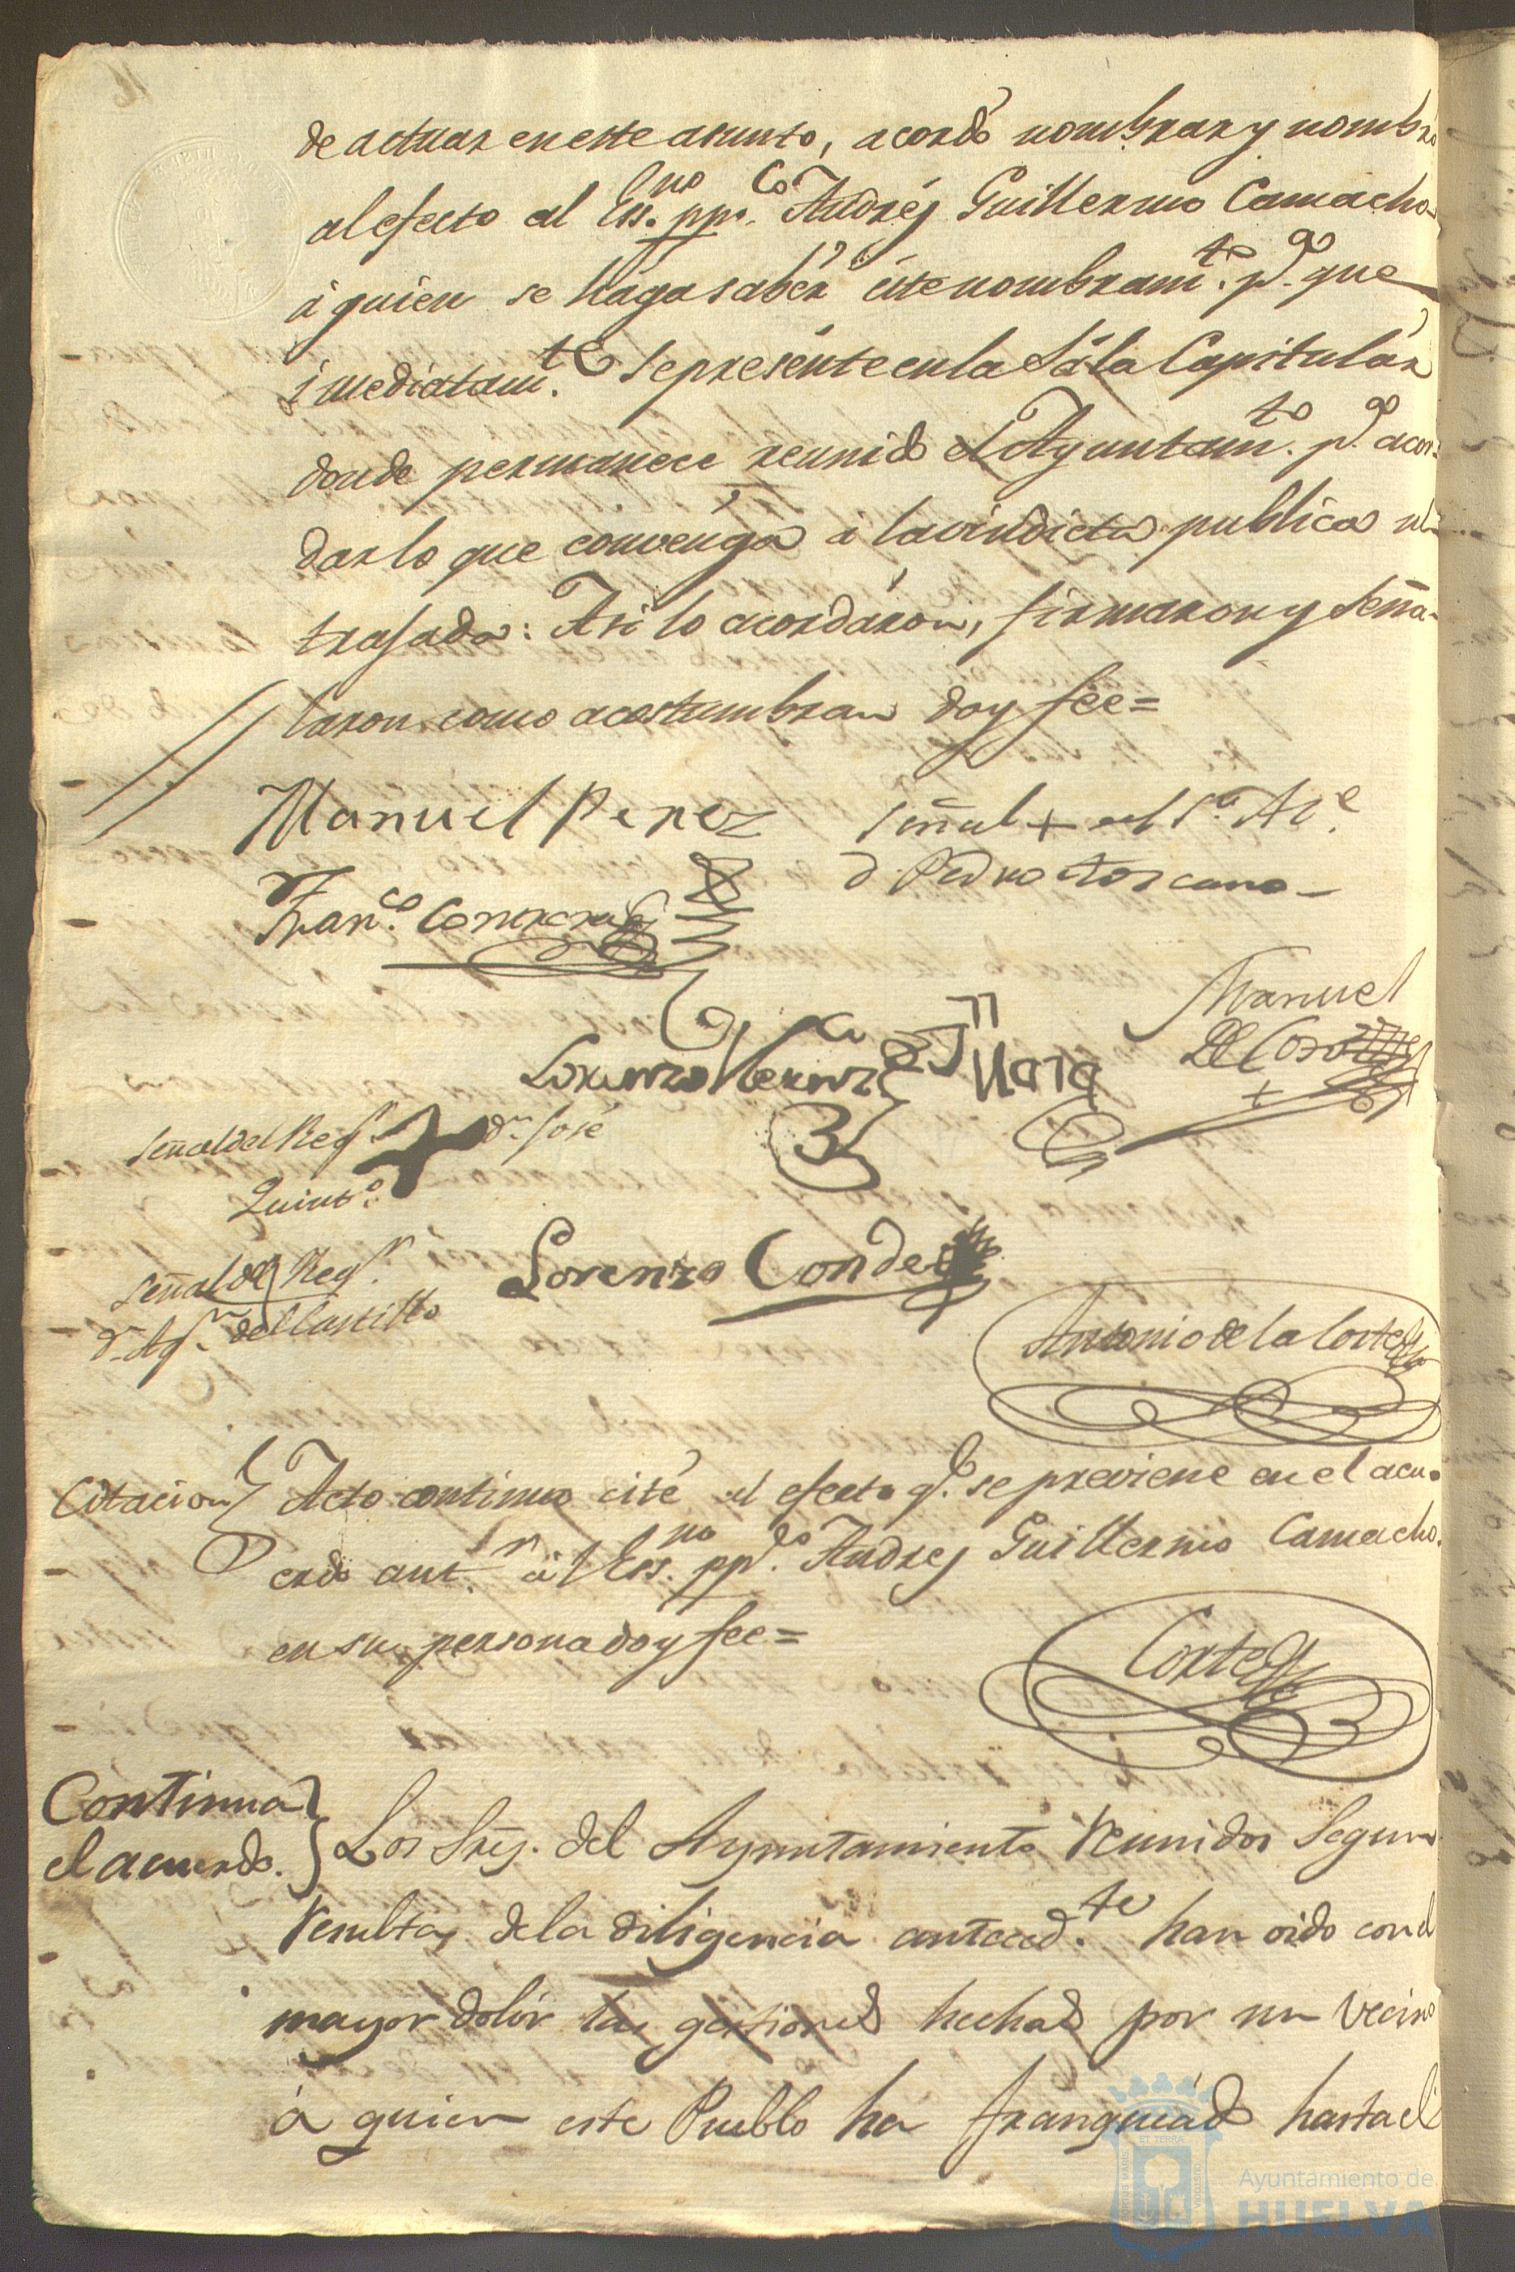 de actuar en este asunto, acordó nombrar y nombró
al efecto al Ess.no pp.co Andrés Guillermo Camacho
á quien se hága sabér éste nombram.to p.a que
imediatam.te se presénte en la Sála Capitulár
donde permanece reunido el Ayuntam.to p.a acor-
dar lo que convénga a la vindicta publica ul-
trajada: Asi lo acordáron, firmaron y Seña-
laron como acostumbran doy fée=
Manuel Perez Señal + del S.or Al.e
D Pedro Toscano
Fran.co Contreras
Manuel
Lorenzo
Señal del Reg.r + D.n José
Quint.o
Lorenzo Conde
Señal del Reg.r
D.n Ag.n del Castillo
Antonio de la Corte
Citacion Acto continuo cité al efecto q.e se previene en el acu-
erdo ant.r á l Ess.no pp.co Andres Guillermo Camacho
en su persona doy fee=
Corte
Continua
el acuerdo. Los Sres. del Ayuntamiento reunidos Segun
resulta de la diligencia anteced.te han oido con el
mayor dolór las gestiones hechas por un vecino
á quien este Pueblo ha franqueádo hasta el
Ayuntamiento de
HUELVA